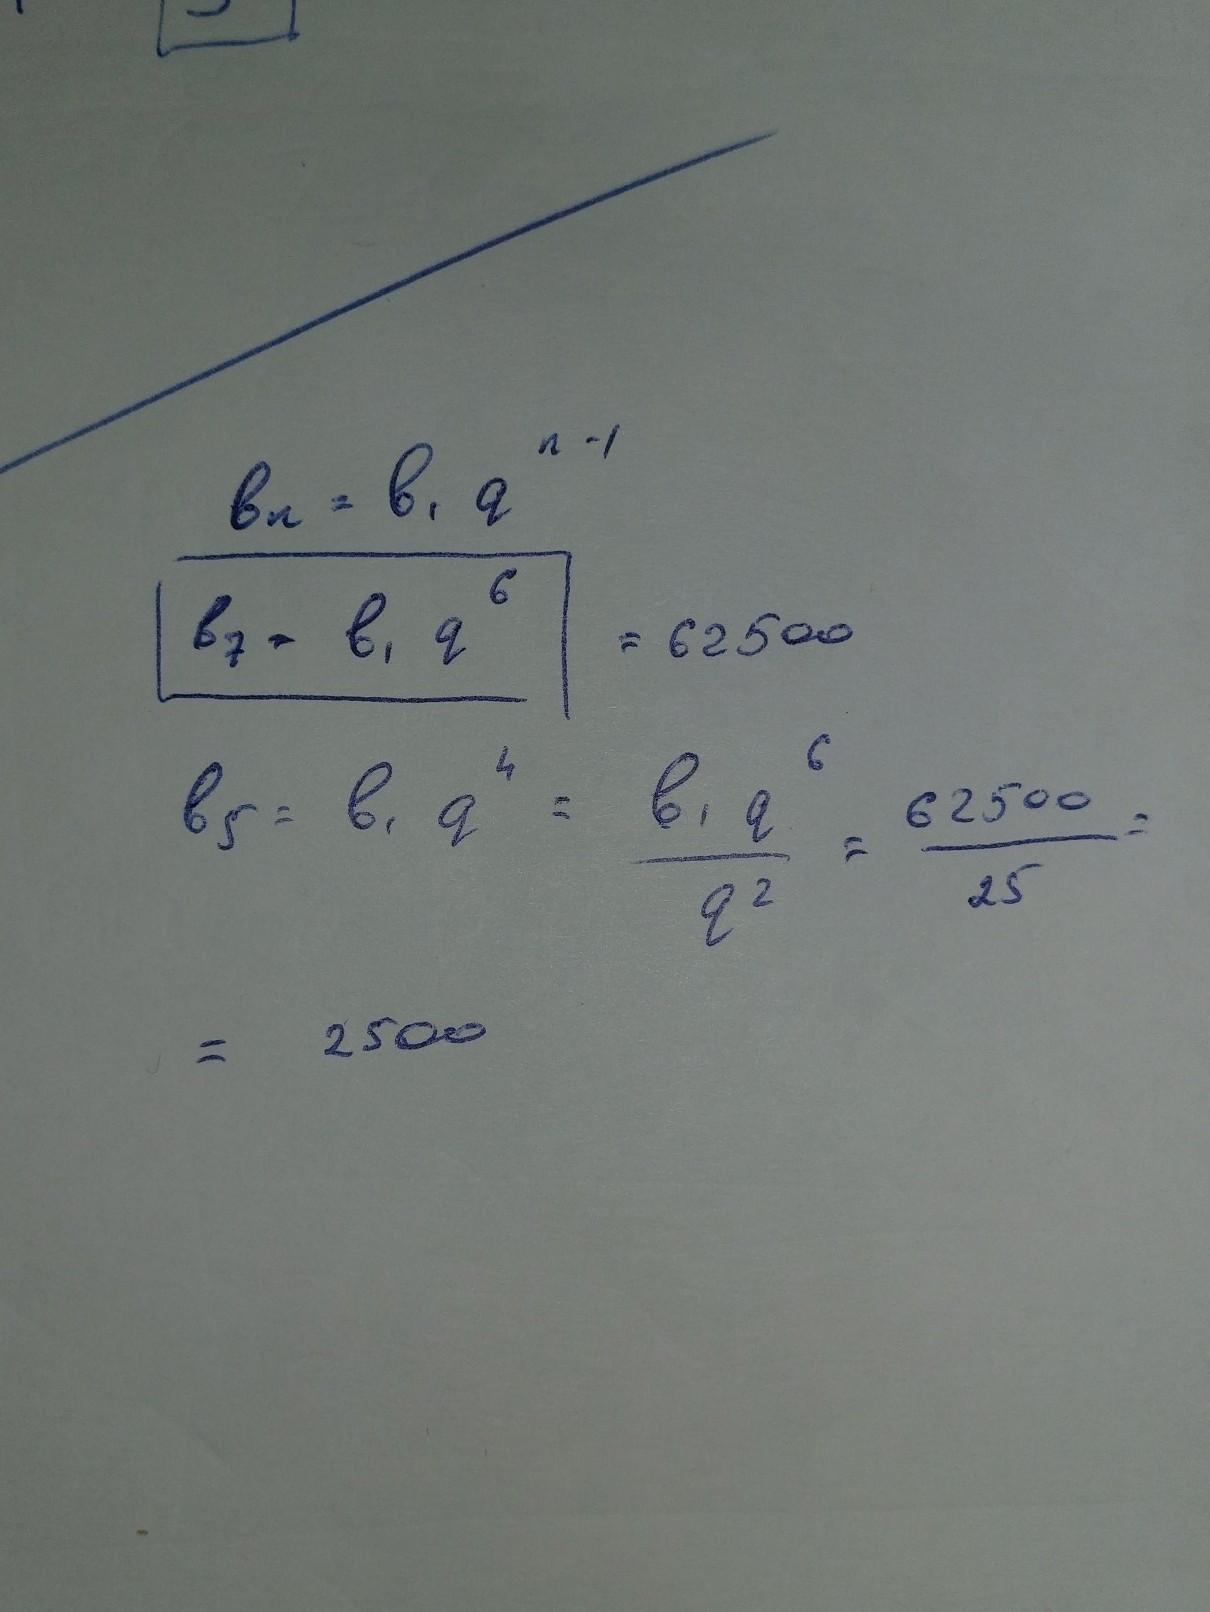 вₙ = в₁ q^(n-1)
в₇ = в₁ q⁶ = 62500
в₅ = в₁ q⁴ = в₁ q⁶ / q² = 62500 / 25 =
= 2500